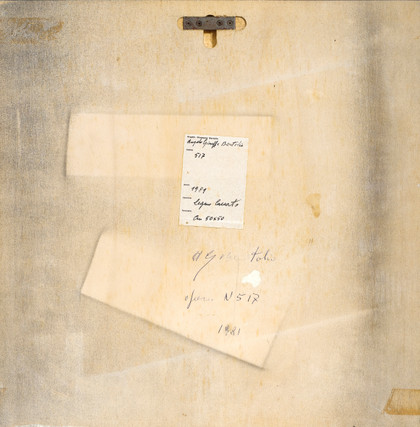 Angelo Giuseppe Bertolio
517
1981
legno laccato
cm 50x50
opera N 517
1981